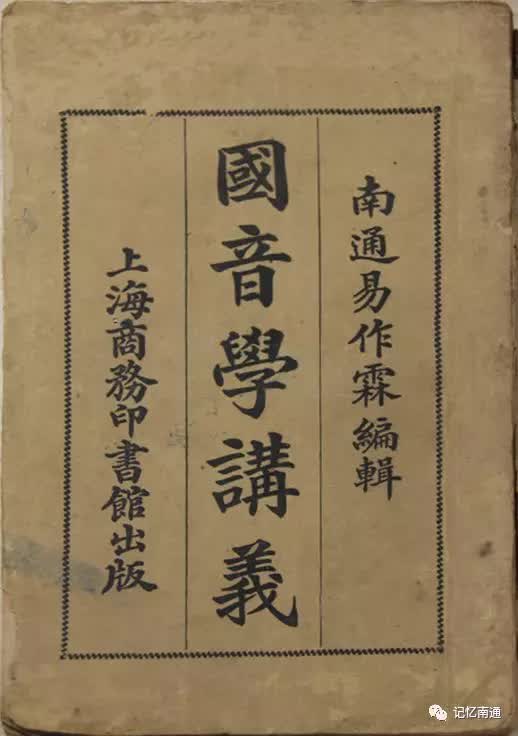 南通易作霖編輯
國音學講義
上海商務印書館出版
记忆南通